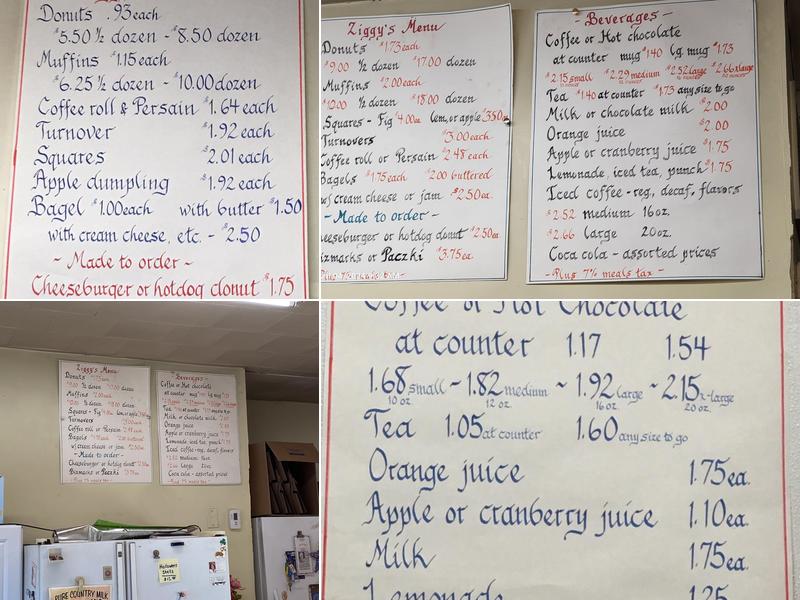 Donuts .93 each
$5.50 ½ dozen - $8.50 dozen
Muffins $1.15 each
$6.25 ½ dozen - $10.00 dozen
Coffee roll & Persain $1.64 each
Turnover $1.92 each
Squares $2.01 each
Apple dumpling $1.92 each
Bagel $1.00 each with butter $1.50
with cream cheese, etc. - $2.50
~ Made to order ~
Cheeseburger or hotdog donut $1.75
Ziggy's Menu
Donuts $1.73 each
$9.00 ½ dozen $17.00 dozen
Muffins $2.00 each
$10.00 ½ dozen $18.00 dozen
Squares - Fig $4.00 ea lem, or apple 3.50 ea
Turnovers $3.00 each
Coffee roll or Persain $2.48 each
Bagels $1.75 each $2.00 buttered
w/ cream cheese or jam $2.50 ea.
- Made to order -
eeseburger or hotdog donut $2.50 ea.
izmarks or Paczki $3.75 ea.
Plus 7% meals tax -
- Beverages -
Coffee or Hot chocolate
at counter mug $1.40 lg mug $1.73
$2.15 small $2.29 medium $2.52 large $2.66 xlarge
Tea $1.40 at counter $1.73 any size to go
Milk or chocolate milk $2.00
Orange juice $2.00
Apple or cranberry juice $1.75
Lemonade, iced tea, punch $1.75
Iced coffee - reg., decaf, flavors
$2.52 medium 16 oz.
$2.66 large 20 oz.
Coca cola - assorted prices
- Plus 7% meals tax -
Ziggy's Menu
Donuts
½ dozen dozen
Muffins
½ dozen dozen
Squares - Fig
Turnovers
Coffee roll or Persain
Bagels
w/ cream cheese or jam
- Made to order -
Cheeseburger or hotdog donut
Bismarks or Paczki
- Beverages -
Coffee or Hot chocolate
at counter
Tea
Milk or chocolate milk
Orange juice
Apple or cranberry juice
Lemonade, iced tea, punch
Iced coffee - reg., decaf, flavors
medium 16 oz.
large 20 oz.
Coca cola - assorted prices
PURE COUNTRY MILK
Coffee or Hot Chocolate
at counter 1.17 1.54
1.68 small ~ 1.82 medium ~ 1.92 large ~ 2.15 x-large
10 oz. 12 oz. 16 oz. 20 oz.
Tea 1.05 at counter 1.60 any size to go
Orange juice 1.75 ea.
Apple or cranberry juice 1.10 ea.
Milk 1.75 ea.
Lemonade 1.25